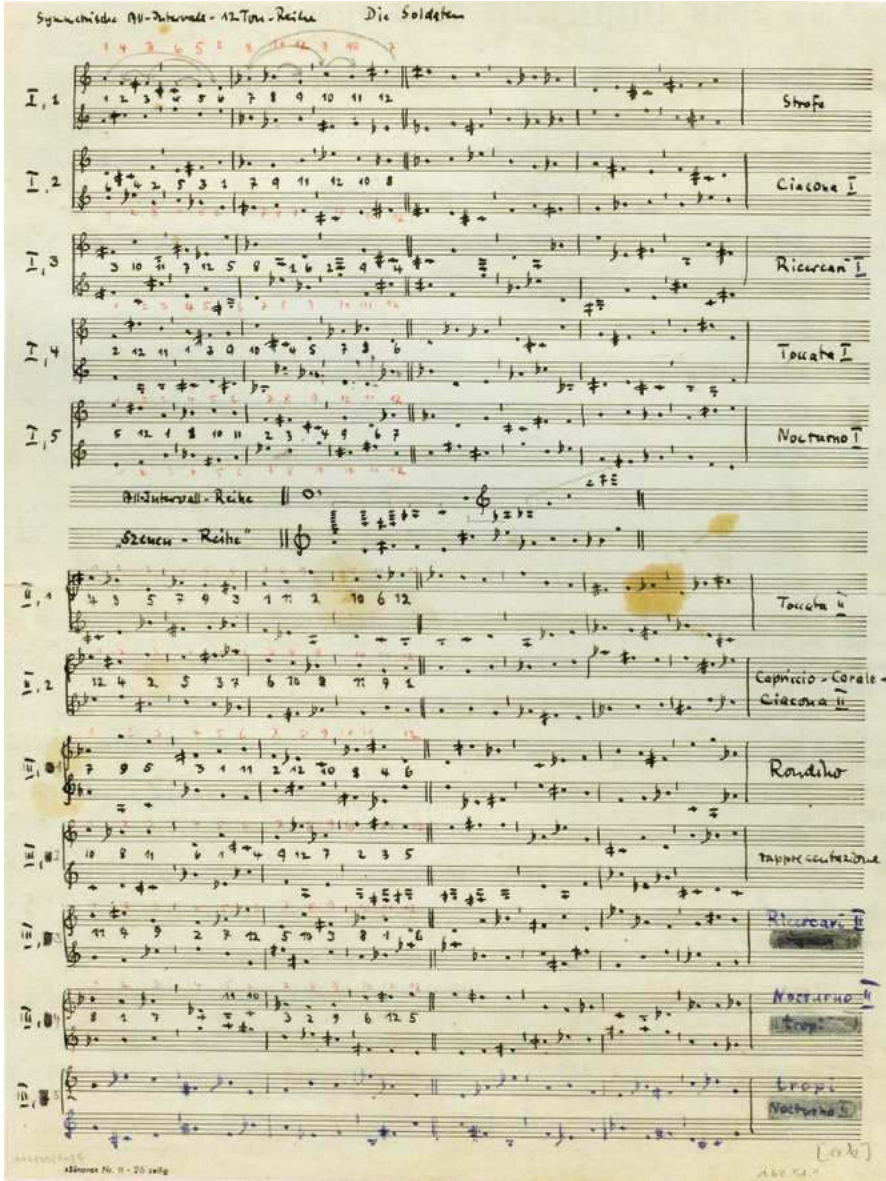 Symmetrische All-Intervall-12 Ton-Reihe Die Soldaten
I, 1 1 2 3 4 5 6 7 8 9 10 11 12 Strofe
I, 2 6 4 2 5 3 1 7 9 11 12 10 8 Ciacona I
I, 3 3 10 11 7 12 5 8 1 6 2 9 4 Ricercari I
I, 4 2 12 11 1 3 9 10 4 5 7 8 6 Toccata I
I, 5 5 12 1 8 10 11 2 3 4 9 6 7 Nocturno I
All-Intervall-Reihe
„Szenen-Reihe"
II, 1 4 3 5 7 9 1 11 2 10 6 12 Toccata II
II, 2 12 4 2 5 3 7 6 10 8 11 9 1 Capriccio-Corale-
Ciacona II
III, 7 9 5 3 1 11 2 12 10 8 4 6 Rondino
III, 2 10 8 11 6 1 4 9 12 7 2 3 5 rappresentazione
III, 3 11 4 9 2 7 12 5 10 3 8 1 6 Ricercari II
8 1 7 11 10 3 2 9 6 12 5 Nocturno II
tropi
tropi
Nocturno II
Nr. 11 - 26 zeilig